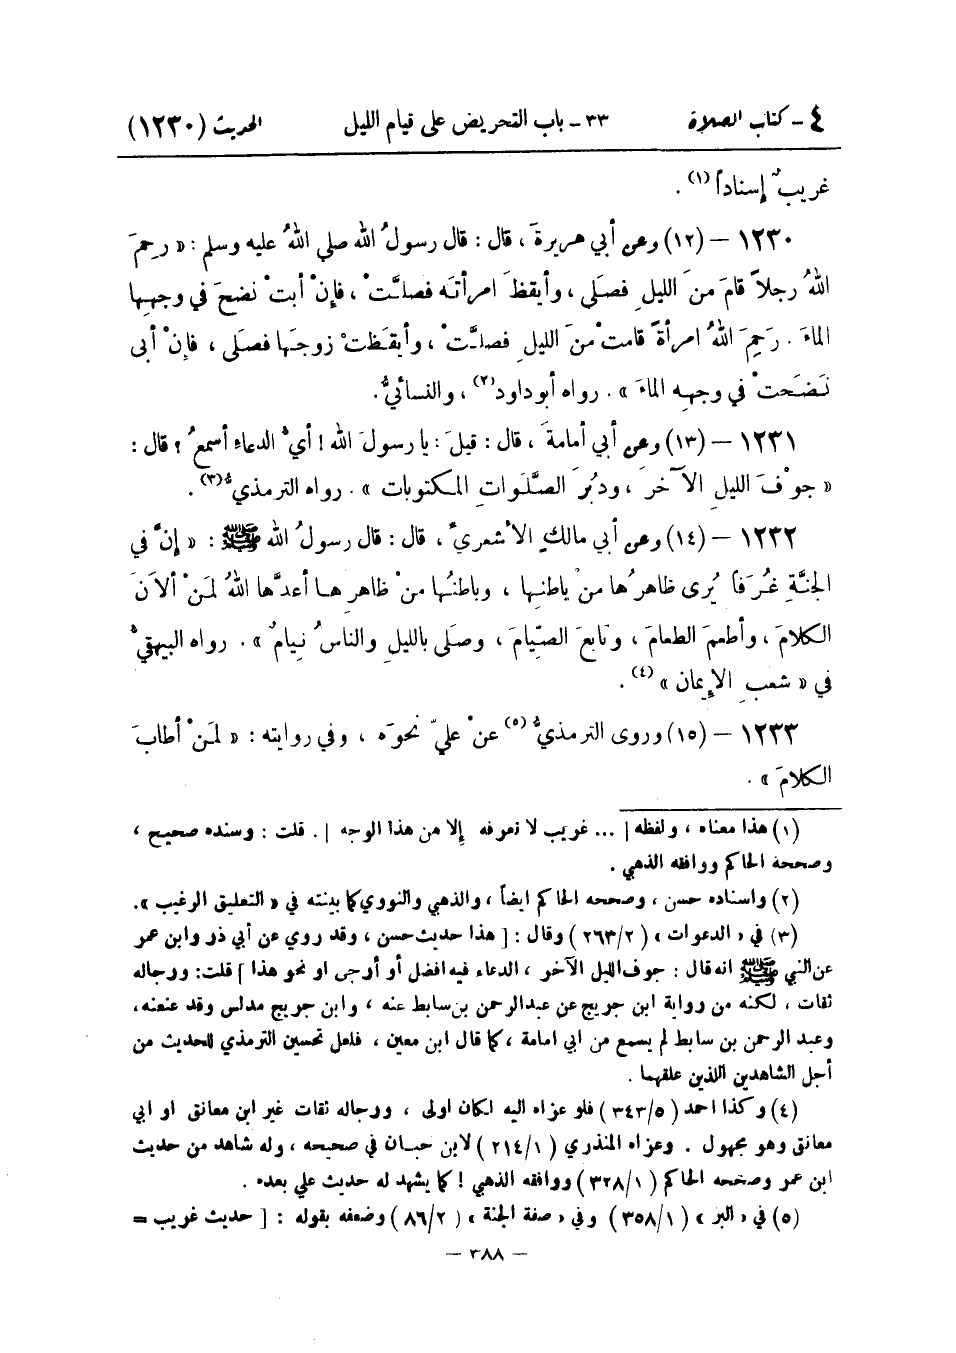 ٤ - كتاب الصلاة ٣٣ - باب التحريض على قيام الليل الحديث (١٢٣٠)
غريبٌ إسناداً (١) .
١٢٣٠ - (١٢) وعن أبي هريرةَ ، قال : قال رسولُ الله صلى اللهُ عليه وسلم : « رحِمَ
اللهُ رجلاً قامَ منَ الليلِ فصَلى ، وأيقظَ امرأتَه فصلَّتْ ، فإنْ أبتْ نضحَ في وجهِها
الماءَ . رَحِمَ اللهُ امرأةً قامتْ منَ الليلِ فصلَّتْ ، وأيقَظتْ زوجَها فصلى ، فإنْ أبى
نَضَحتْ في وجهِه الماءَ » . رواه أبوداود (٢) ، والنسائيُّ.
١٢٣١ - (١٣) وعن أبي أمامةَ ، قال : قيلَ : يا رسولَ الله ! أيُّ الدعاءِ أسمعُ ؟ قال :
« جوْفَ الليلِ الآخرَ ، ودبُرَ الصَّلَواتِ المكتوبات » . رواه الترمذيُّ (٣) .
١٢٣٢ - (١٤) وعن أبي مالكٍ الأشعريِّ ، قال : قال رسولُ الله ﷺ : « إنَّ في
الجنَّةِ غُرَفاً يُرى ظاهرُها منْ باطنِها ، وباطنُها منْ ظاهرِها أعدَّها اللهُ لمَنْ ألاَنَ
الكلامَ ، وأطعمَ الطعامَ ، وتابعَ الصّيامَ ، وصلى بالليلِ والناسُ نيامٌ » . رواه البيهقيُّ
في « شعبِ الإيمان » (٤) .
١٢٣٣ - (١٥) وروى الترمذيُّ (٥) عنْ عليّ نحوَه ، وفي روايته : « لمَنْ أطابَ
الكلامَ » .
(١) هذا معناه ، ولفظه [ ... غريب لا نعرفه إلا من هذا الوجه ] . قلت : وسنده صحيح ،
وصححه الحاكم ووافقه الذهبي .
(٢) واسناده حسن ، وصححه الحاكم ايضاً ، والذهبي والنووي كما بينته في « التعليق الرغيب ».
(٣) في « الدعوات » (٢٦٣/٢) وقال : [ هذا حديث حسن ، وقد روي عن أبي ذر وابن عمر
عن النبي ﷺ انه قال : جوف الليل الآخر ، الدعاء فيه افضل أو أرجى او نحو هذا ] قلت : ورجاله
ثقات ، لكنه من رواية ابن جريج عن عبدالرحمن بن سابط عنه ، وابن جريج مدلس وقد عنعنه ،
وعبد الرحمن بن سابط لم يسمع من ابي امامة ، كما قال ابن معين ، فلعل تحسين الترمذي للحديث من
أجل الشاهدين اللذين علقهما .
(٤) وكذا احمد (٣٤٣/٥) فلو عزاه اليه لكان اولى ، ورجاله ثقات غير ابن معانق او ابي
معانق وهو مجهول . وعزاه المنذري (٢١٤/١) لابن حبان في صحيحه ، وله شاهد من حديث
ابن عمر وصححه الحاكم (٣٢٨/١) ووافقه الذهبي ! كما يشهد له حديث علي بعده .
(٥) في « البر » (٣٥٨/١) وفي « صفة الجنة » (٨٦/٢) وضعفه بقوله : [ حديث غريب =
- ٣٨٨ -